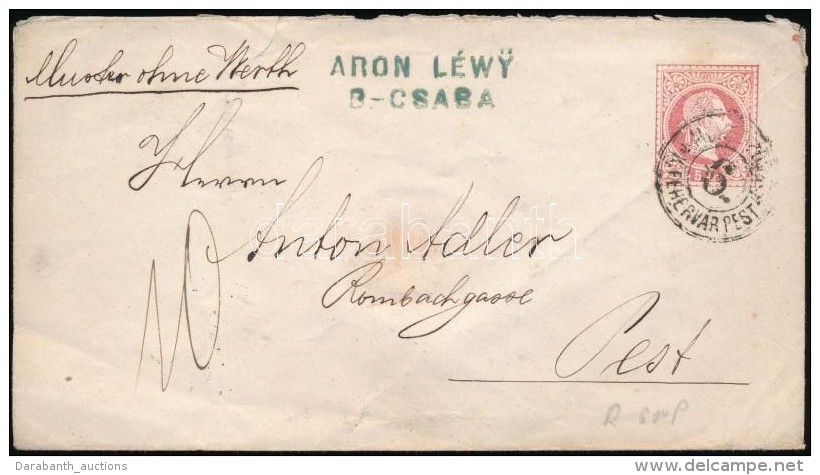 Muster ohne Werth
ARON LÉWŸ
B-CSABA
Herrn
Anton Adler
Rombachgasse
Pest
10
6.
FEHÉRVÁR PEST
darabanth
Darabanth_auctions
www.delcampe.net